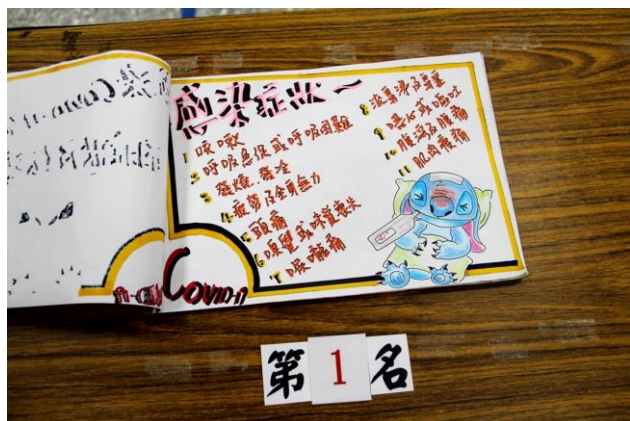 感染症狀～
1 咳嗽
2 呼吸急促或呼吸困難
3 發燒、發冷
4 疲勞及全身無力
5 頭痛
6 嗅覺或味覺喪失
7 喉嚨痛
8 流鼻涕及鼻塞
9 噁心或嘔吐
10 腹瀉及腹痛
11 肌肉痠痛
第1名